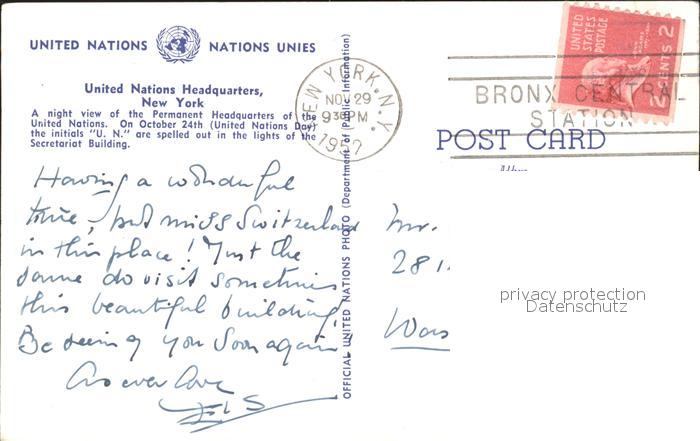 UNITED NATIONS NATIONS UNIES
United Nations Headquarters,
New York
A night view of the Permanent Headquarters of the
United Nations. On October 24th (United Nations Day)
the initials "U. N." are spelled out in the lights of the
Secretariat Building.
Having a wonderful
time, but miss Switzerland
in this place! Just the
same do visit sometimes
this beautiful building.
Be seeing you soon again
As ever love
OFFICIAL UNITED NATIONS PHOTO (Department of Public Information)
NEW YORK, N.Y.
NOV 29
930PM
1957
BRONX CENTRAL
STATION
UNITED
STATES
POSTAGE
2 CENTS 2
POST CARD
Mr.
281.
privacy protection
Datenschutz